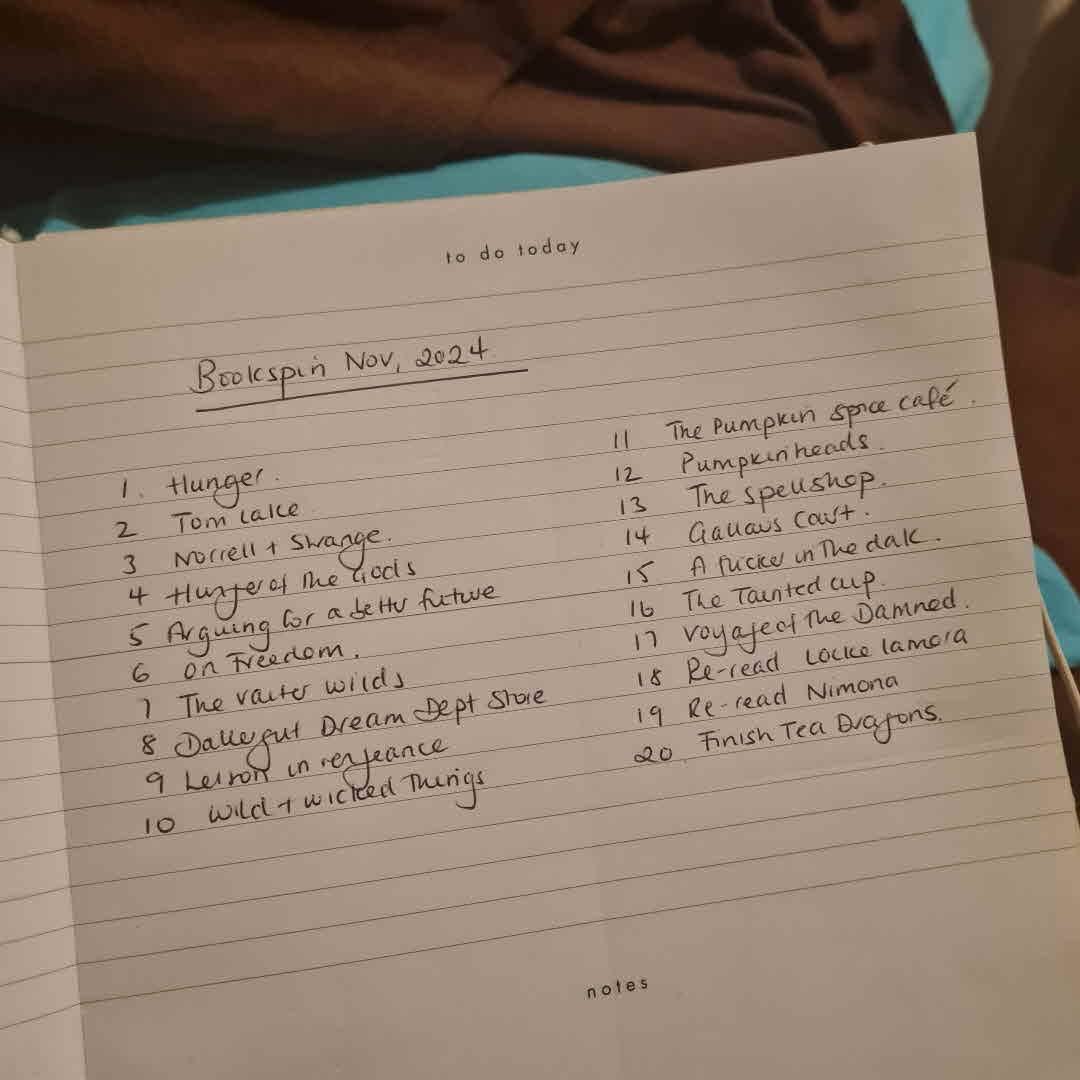 to do today
Bookspin Nov, 2024
1. Hunger.
2 Tom Lake
3 Norrell + Strange.
4 Hunger of the Gods
5 Arguing for a better future
6 On Freedom.
7 The vaster wilds
8 Dallergut Dream Dept Store
9 in vengeance
10 Wild + wicked Things
11 The Pumpkin spice café.
12 Pumpkinheads.
13 The spellshop.
14 Gallows Court.
15 A flicker in The dark.
16 The Tainted cup.
17 voyage of the Damned.
18 Re-read Locke lamora
19 Re-read Nimona
20. Finish Tea Dragons.
notes